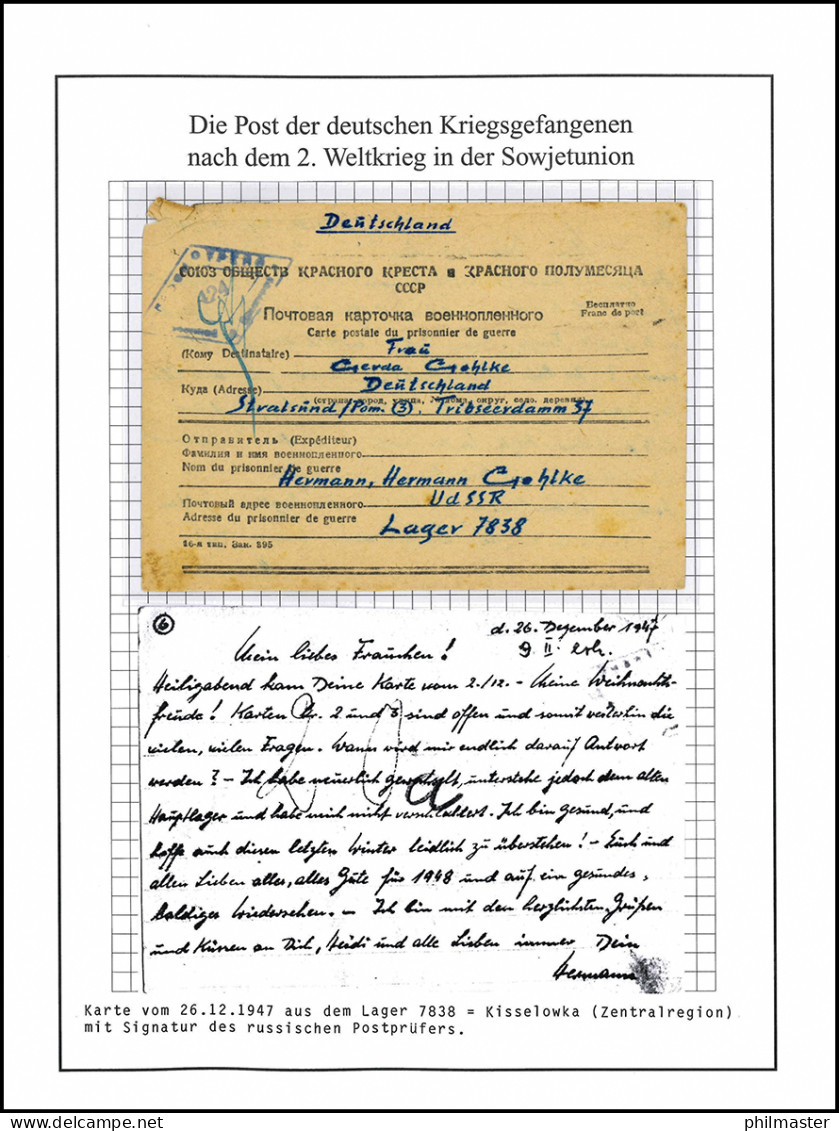 Die Post der deutschen Kriegsgefangenen
nach dem 2. Weltkrieg in der Sowjetunion
Deutschland
СОЮЗ ОБЩЕСТВ КРАСНОГО КРЕСТА и КРАСНОГО ПОЛУМЕСЯЦА
СССР
Почтовая карточка военнопленного
Бесплатно
Carte postale du prisonnier de guerre
Franc de port
Frau
(Кому Destinataire)
Gerda Gehlke
Deutschland
Куда (Adresse)
Stralsund/Pom. (3). Tribseerdamm 37
Отправитель (Expéditeur)
Фамилия и имя военнопленного
Nom du prisonnier de guerre
Hermann, Hermann Gehlke
UdSSR
Почтовый адрес военнопленного
Adresse du prisonnier de guerre
Lager 7838
16-я тип. Зак. 395
6
d. 26. Dezember 1947
Mein liebes Frauchen! 9 II. erh.
Heiligabend kam Deine Karte vom 2./12. - Meine Weihnachts-
freude! Karten Nr. 2 und 3 sind offen und somit weiterhin die
vielen, vielen Fragen. Wann wird mir endlich darauf Antwort
werden? - Ich habe neuerlich gewechselt, unterstehe jedoch dem alten
Hauptlager und habe mich nicht verschlechtert. Ich bin gesund, und
hoffe auch diesen letzten Winter leidlich zu überstehen! - Euch und
allen Lieben alles, alles Gute für 1948 und auf ein gesundes,
baldiges Wiedersehen. - Ich bin mit den herzlichsten Grüßen
und Küssen an Dich, Heidi und alle Lieben immer Dein
Hermann
Karte vom 26.12.1947 aus dem Lager 7838 = Kisselowka (Zentralregion)
mit Signatur des russischen Postprüfers.
philmaster